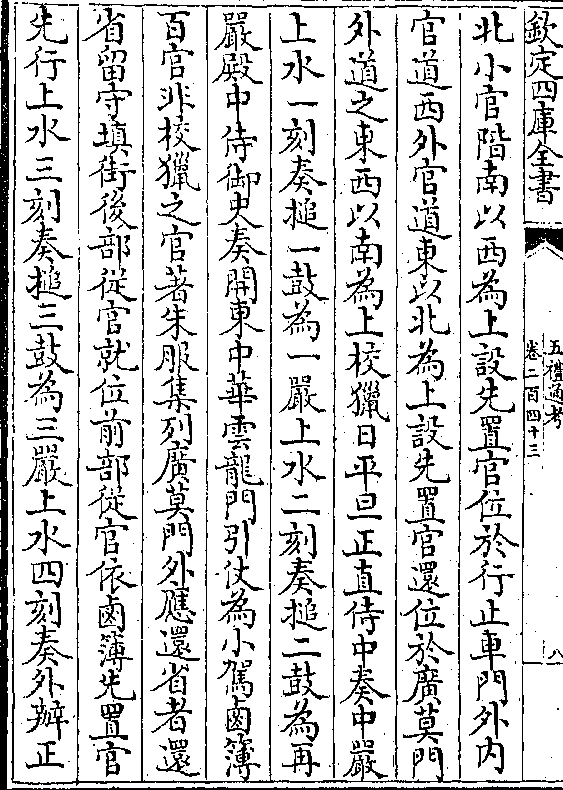 欽定四庫全書
五禮通考
卷二百四十三
八
北小官階南以西為上設先置官位於行止車門外內
官道西外官道東以北為上設先置官還位於廣莫門
外道之東西以南為上校獵日平旦正直侍中奏中嚴
上水一刻奏搥一鼓為一嚴上水二刻奏搥二鼓為再
嚴殿中侍御史奏開東中華雲龍門引仗為小駕鹵簿
百官非校獵之官著朱服集列廣莫門外應還省者還
省留守填街後部從官就位前部從官依鹵簿先置官
先行上水三刻奏搥三鼓為三嚴上水四刻奏外辦正